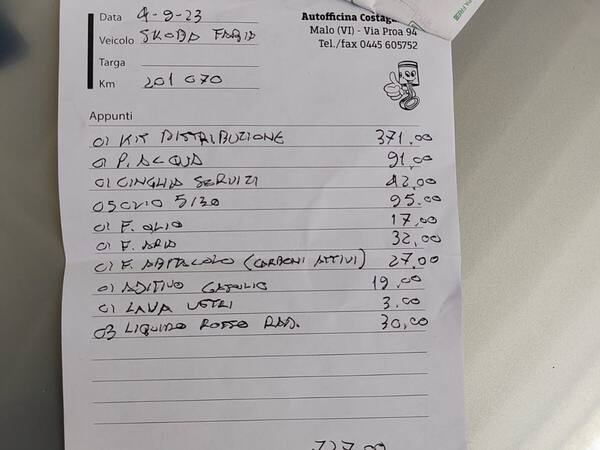 Data 4-9-23
Veicolo SKODA FABIA
Targa
Km 201070
Autofficina Costag
Malo (VI) - Via Proa 94
Tel./fax 0445 605752
Appunti
01 KIT DISTRIBUZIONE 371,00
01 P. ACQUA 91,00
01 CINGHIA SERVIZI 42,00
05 OLIO 5/30 95,00
01 F. OLIO 17,00
01 F. ARIA 32,00
01 F. ABITACOLO (CARBONI ATTIVI) 27,00
01 ADITIVO GASOLIO 19,00
01 LAVA VETRI 3,00
03 LIQUIDO ROSSO RAD. 30,00
727,00